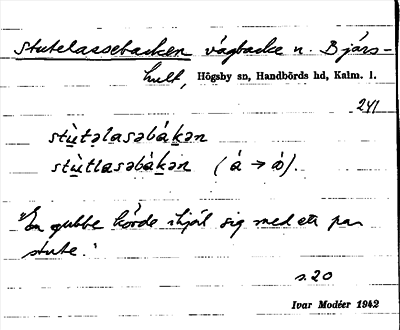 Stutelassebacken vägbacke n. Bjärs-
hult, Högsby sn, Handbörds hd, Kalm. l.
241
stu̱təlasəbák̲ən
stu̱tlasəbák̲ən (á → ȯ́).
"En gubbe körde ihjäl sig med ett par
stutar."
s. 20
Ivar Modéer 1942